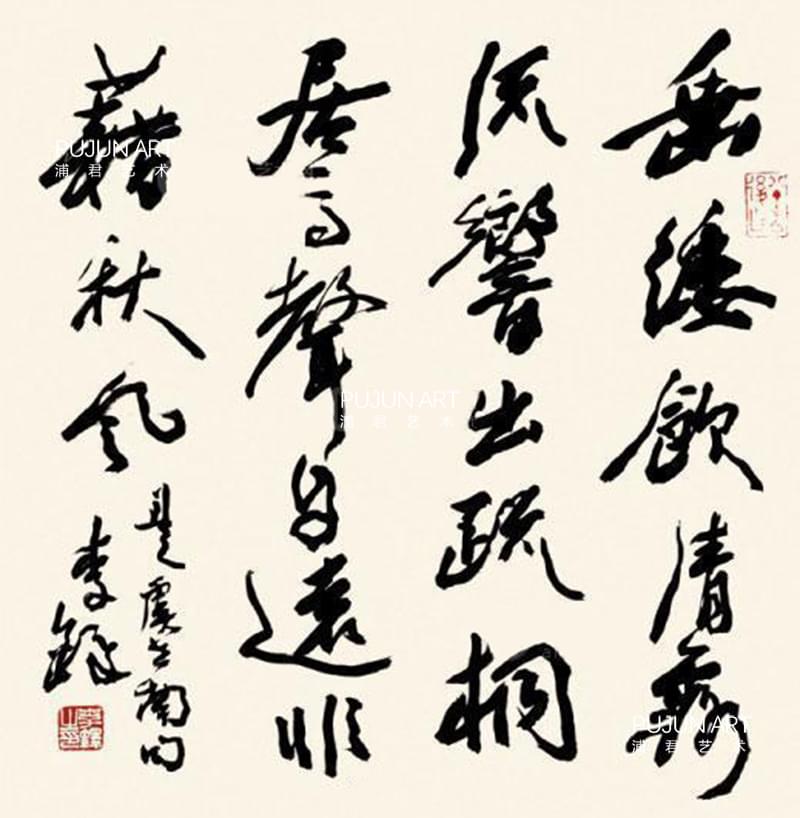 垂緌飲清露
流響出疏桐
居高聲自遠非
藉秋風
是虞世南句
李鐸
PUJUN ART
浦君艺术
PUJUN ART
浦君艺术
PUJUN ART
浦君艺术